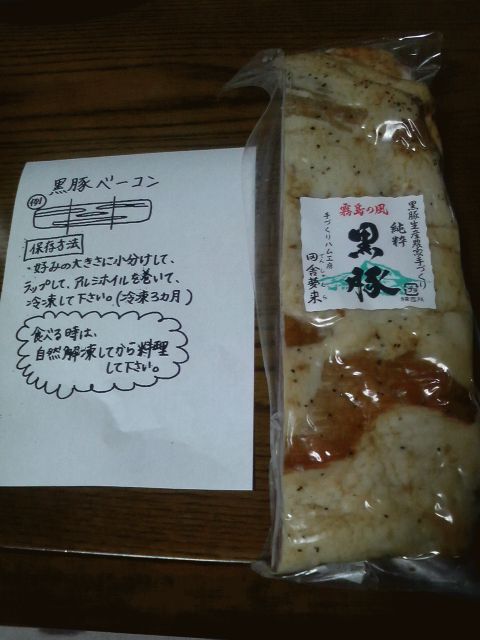 黒豚ベーコン
例
保存方法
・好みの大きさに小分けして、
ラップして、アルミホイルを巻いて、
冷凍して下さい。(冷凍3ヵ月)
食べる時は、
自然解凍してから料理
して下さい。
霧島の風
黒豚生産農家手づくり
純粋
黒豚
手づくりハム工房
田舎夢来